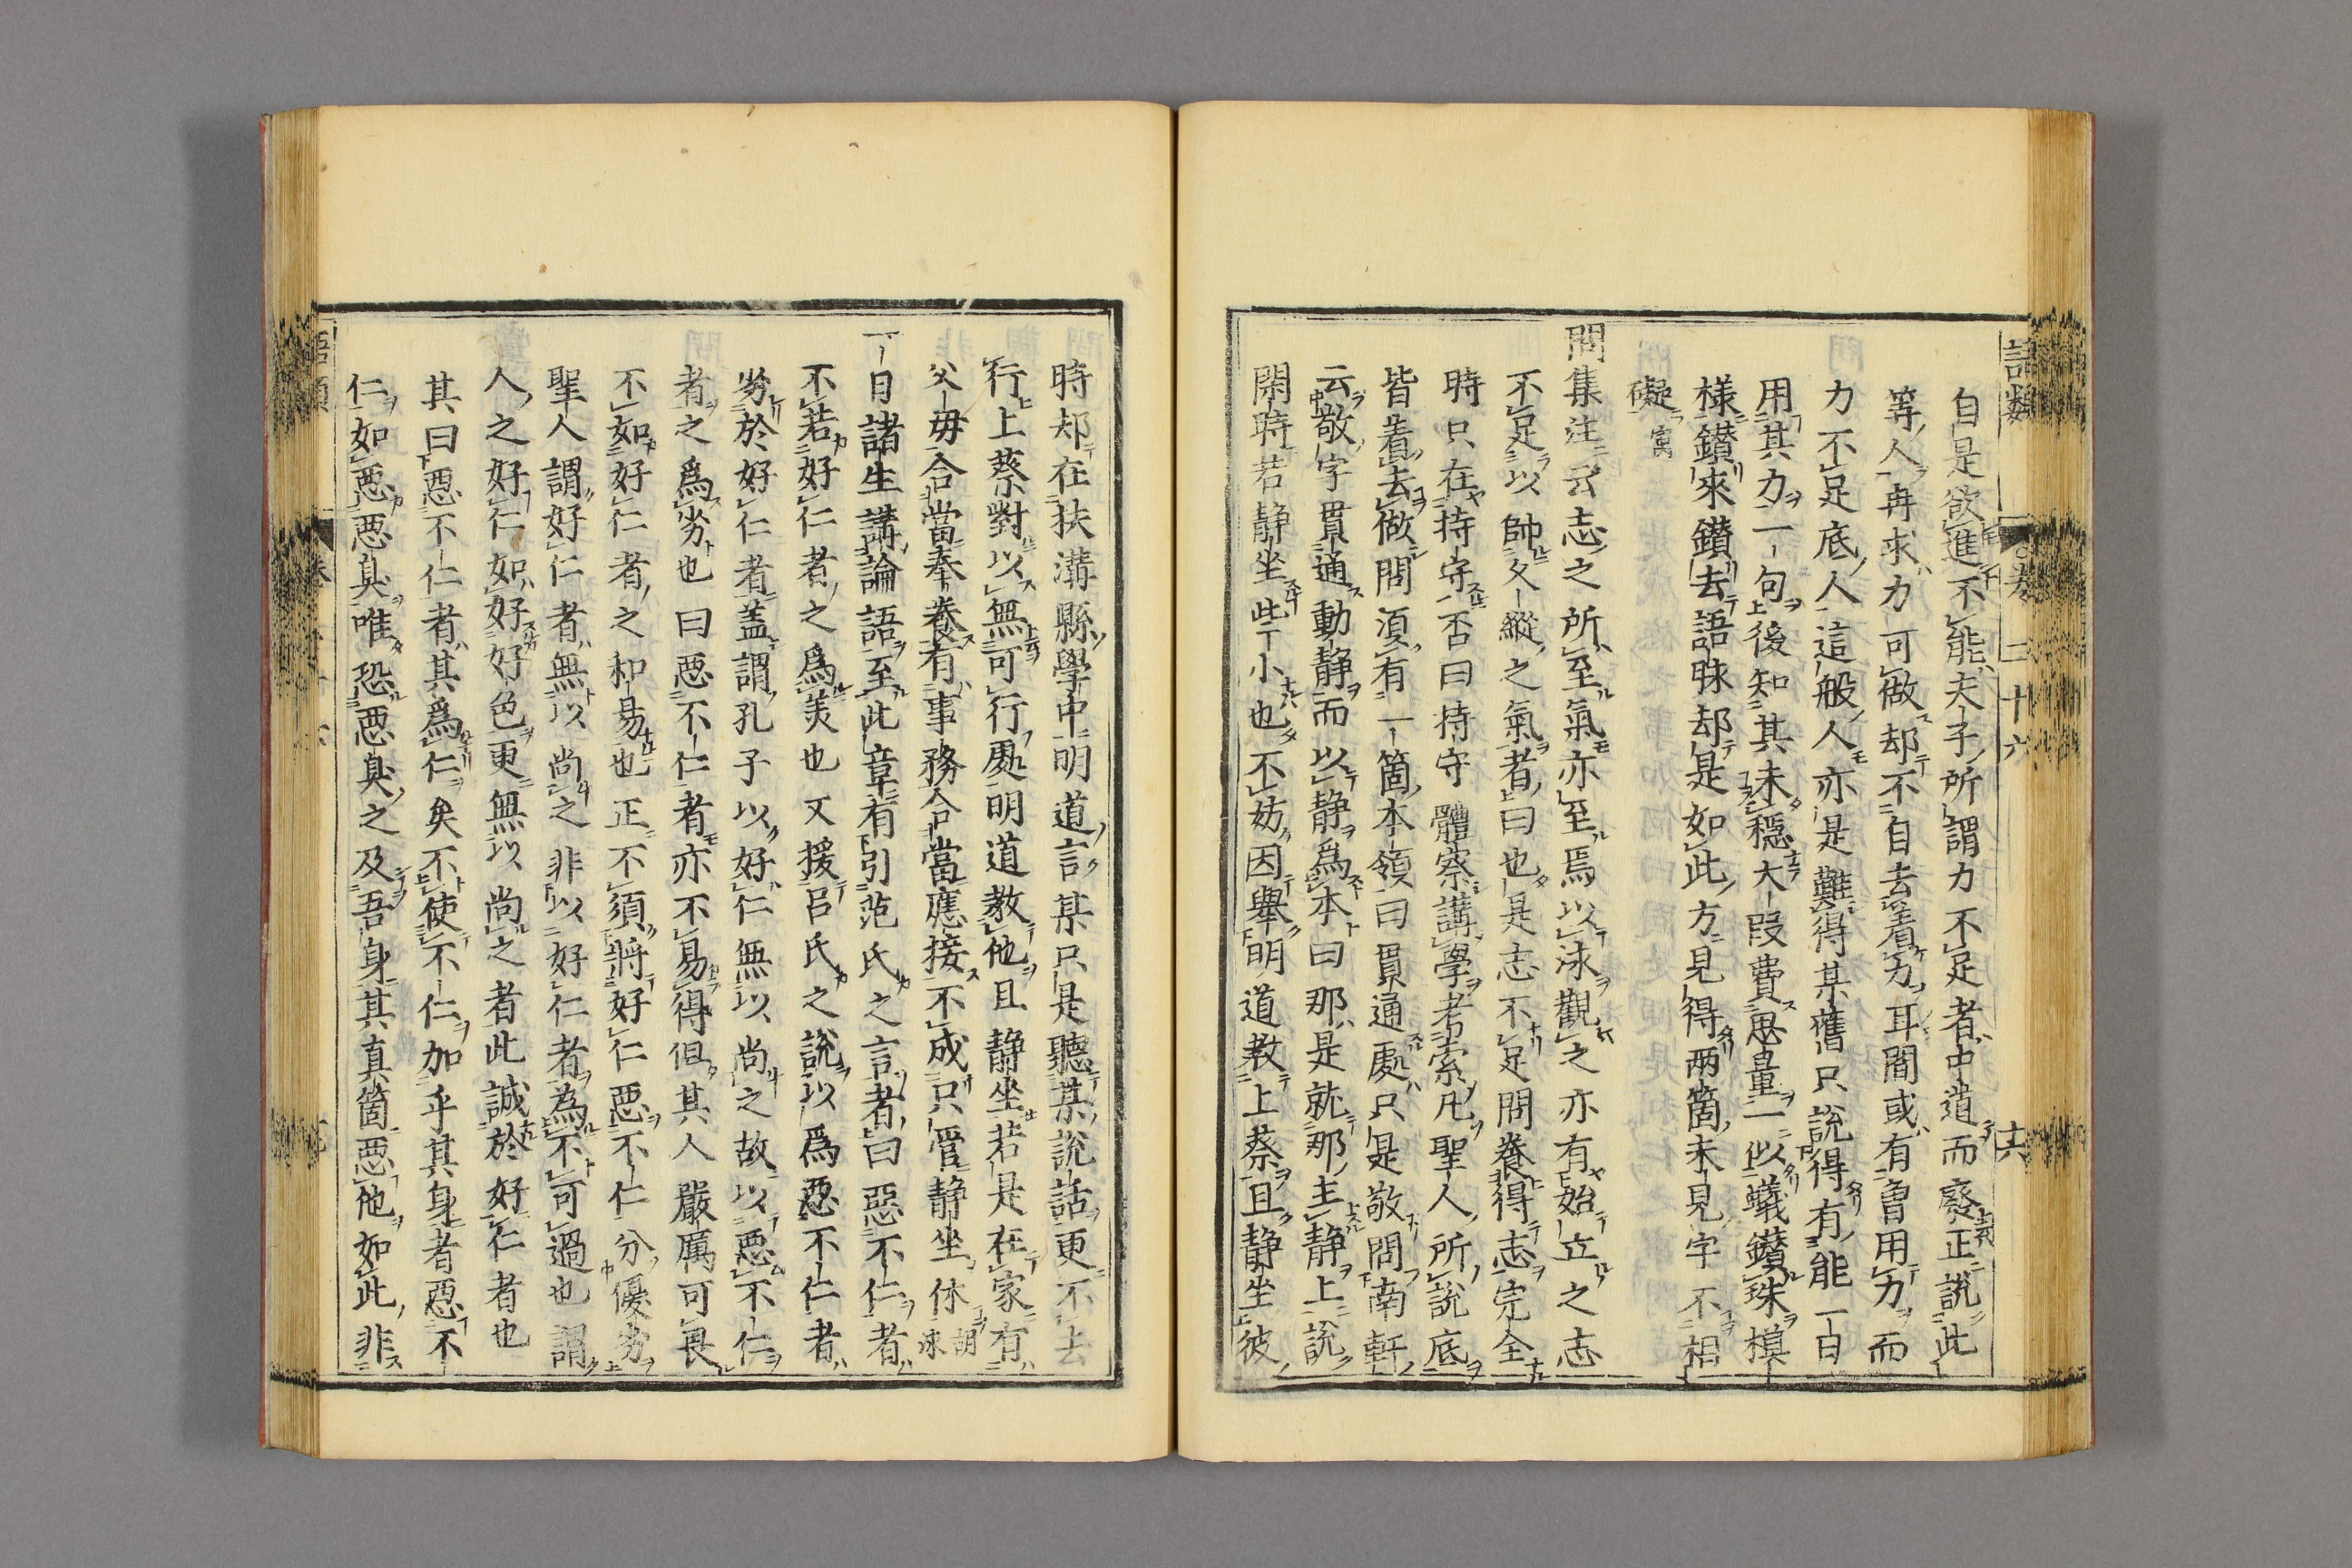 語類
卷二十六
十六
自是欲進不能夫子所謂力不足者中道而廢正說此
等人冉求力可做却不自去着力耳間或有曾用力而
力不足底人這般人亦是難得某舊只說得有能一日
用其力一句後知其未穩大段費思量一似蟻鑽珠模
樣鑽來鑽去語脉却是如此方見得兩箇未見字不相
礙寓
問集注云志之所至氣亦至焉以泳觀之亦有始立之志
不足以帥久縱之氣者曰也是志不足問養得志完全
時只在持守否曰持守體察講學考索凡聖人所說底
皆着去做問須有一箇本領曰貫通處只是敬問南軒
云敬字貫通動靜而以靜爲本曰那是就那主靜上說
閑時若靜坐些小也不妨因舉明道教上蔡且靜坐彼
時却在扶溝縣學中明道言某只是聽某說話更不去
行上蔡對以無可行處明道教他且靜坐若是在家有
父母合當奉養有事務合當應接不成只管靜坐休胡泳
一日諸生講論語至此章有引范氏之言者曰惡不仁者
不若好仁者之爲美也又援呂氏之說以爲惡不仁者
劣於好仁者蓋謂孔子以好仁無以尚之故以惡不仁
者之爲劣也曰惡不仁者亦不易得但其人嚴厲可畏
不如好仁者之和易也正不須將好仁惡不仁分優劣
聖人謂好仁者無以尚之非以好仁者為不可過也謂
人之好仁如好好色更無以尚之者此誠於好仁者也
其曰惡不仁者其爲仁矣不使不仁加乎其身者惡不
仁如惡惡臭唯恐惡臭之及吾身其真箇惡他如此非